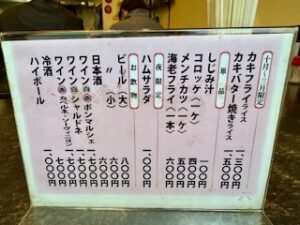 十月〜三月限定
カキフライライス 一、三〇〇円
カキバター焼きライス 一、五〇〇円
単品
しじみ汁 一〇〇円
コロッケ(一ケ) 四〇〇円
メンチカツ(一ケ) 五〇〇円
海老フライ(一本) 六〇〇円
夜限定
ハムサラダ 一、〇〇〇円
お飲物
ビール(大) 八〇〇円
〃 (小) 六〇〇円
日本酒 六〇〇円
ワイン 白 赤 ボンマルシェ 一、七〇〇円
ワイン 白 シャルドネ 一、七〇〇円
ワイン 赤 カベルネ・ソーヴィニヨン 一、七〇〇円
冷酒 一、〇〇〇円
ハイボール